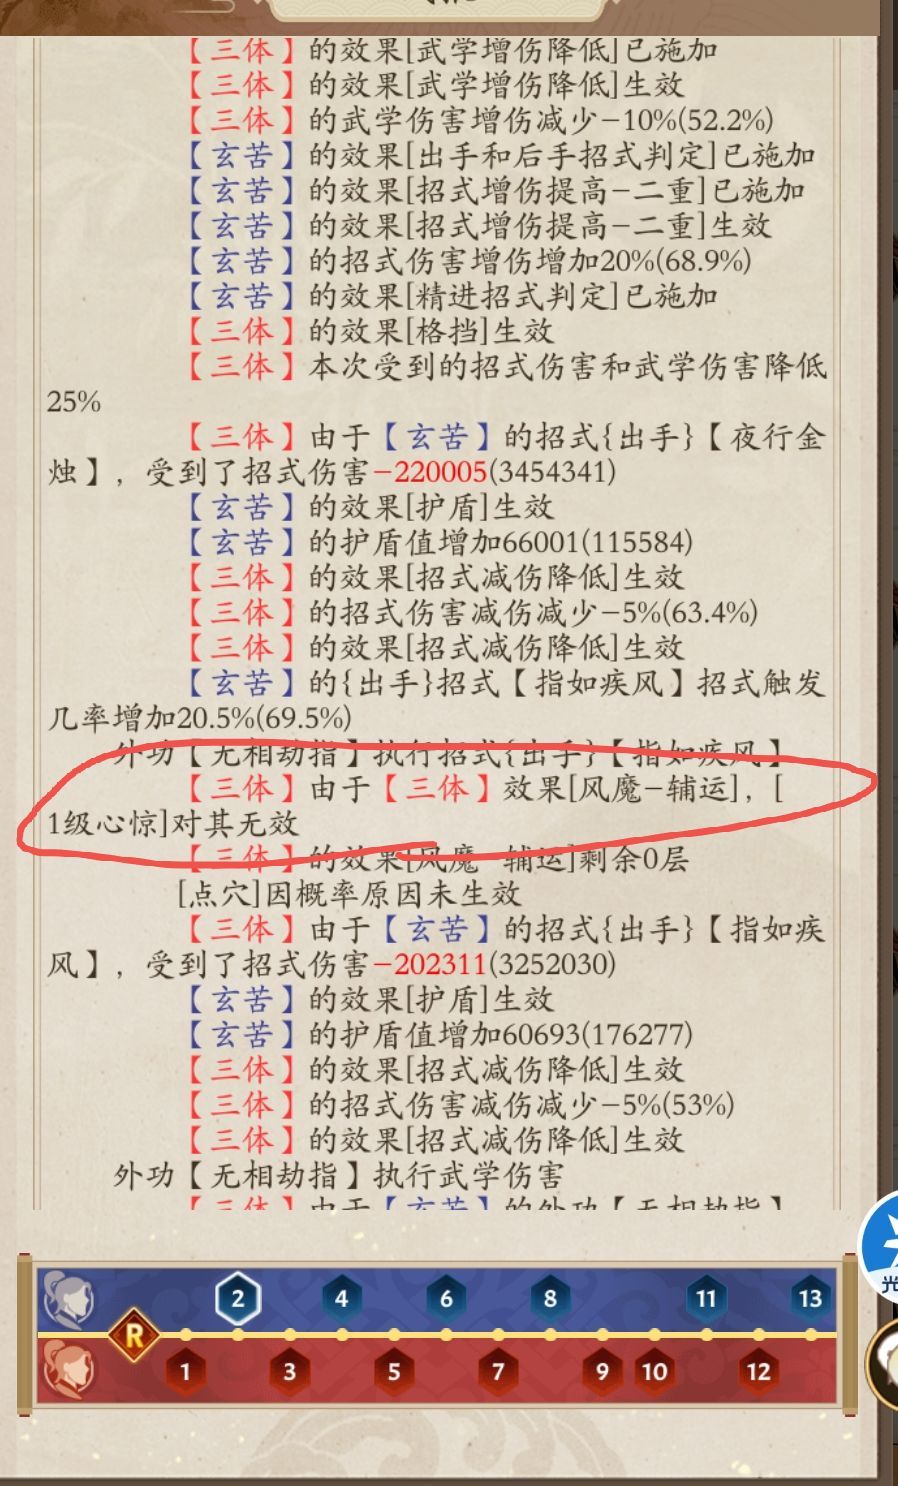 【三体】的效果[武学增伤降低]已施加
【三体】的效果[武学增伤降低]生效
【三体】的武学伤害增伤减少-10%(52.2%)
【玄苦】的效果[出手和后手招式判定]已施加
【玄苦】的效果[招式增伤提高-二重]已施加
【玄苦】的效果[招式增伤提高-二重]生效
【玄苦】的招式伤害增伤增加20%(68.9%)
【玄苦】的效果[精进招式判定]已施加
【三体】的效果[格挡]生效
【三体】本次受到的招式伤害和武学伤害降低
25%
【三体】由于【玄苦】的招式{出手}【夜行金
烛】，受到了招式伤害-220005(3454341)
【玄苦】的效果[护盾]生效
【玄苦】的护盾值增加66001(115584)
【三体】的效果[招式减伤降低]生效
【三体】的招式伤害减伤减少-5%(63.4%)
【三体】的效果[招式减伤降低]生效
【玄苦】的{出手}招式【指如疾风】招式触发
几率增加20.5%(69.5%)
外功【无相劫指】执行招式{出手}【指如疾风】
【三体】由于【三体】效果[风魔-辅运]，[
1级心惊]对其无效
【三体】的效果[风魔-辅运]剩余0层
[点穴]因概率原因未生效
【三体】由于【玄苦】的招式{出手}【指如疾
风】，受到了招式伤害-202311(3252030)
【玄苦】的效果[护盾]生效
【玄苦】的护盾值增加60693(176277)
【三体】的效果[招式减伤降低]生效
【三体】的招式伤害减伤减少-5%(53%)
【三体】的效果[招式减伤降低]生效
外功【无相劫指】执行武学伤害
【三体】由于【玄苦】的外功【无相劫指】
光
2 4 6 8 11 13
R
1 3 5 7 9 10 12